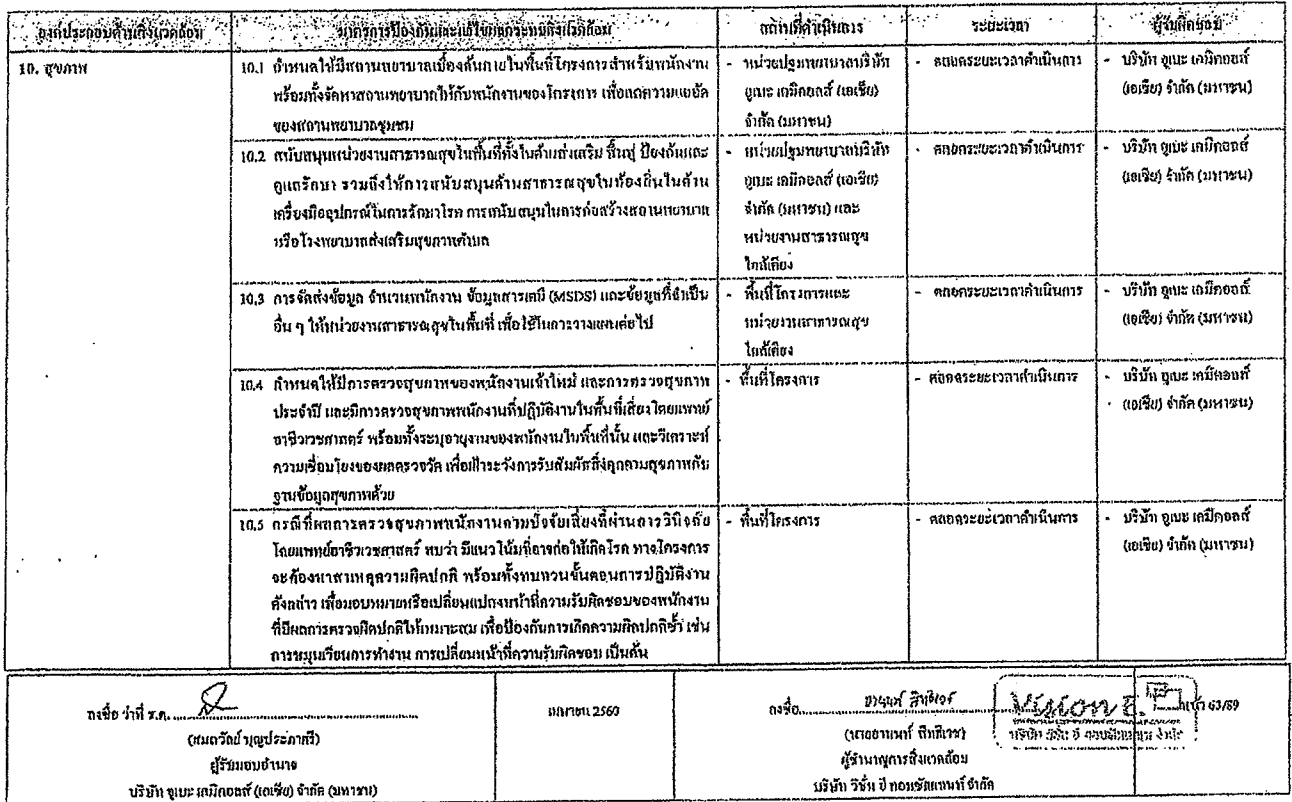 องค์ประกอบด้านสิ่งแวดล้อม
มาตรการป้องกันและแก้ไขผลกระทบสิ่งแวดล้อม
สถานที่ดำเนินการ
ระยะเวลา
ผู้รับผิดชอบ
10. สุขภาพ
10.1 กำหนดให้มีสถานพยาบาลเบื้องต้นภายในพื้นที่โครงการสำหรับพนักงาน
พร้อมทั้งจัดหาสถานพยาบาลให้กับพนักงานของโครงการ เพื่อลดความแออัด
ของสถานพยาบาลชุมชน
- หน่วยปฐมพยาบาลบริษัท
อูเบะ เคมิคอลส์ (เอเชีย)
จำกัด (มหาชน)
- ตลอดระยะเวลาดำเนินการ
- บริษัท อูเบะ เคมิคอลส์
(เอเชีย) จำกัด (มหาชน)
10.2 สนับสนุนหน่วยงานสาธารณสุขในพื้นที่ทั้งในด้านส่งเสริม ฟื้นฟู ป้องกันและ
ดูแลรักษา รวมถึงให้การสนับสนุนด้านสาธารณสุขในท้องถิ่นในด้าน
เครื่องมืออุปกรณ์ในการรักษาโรค การสนับสนุนในการก่อสร้างสถานพยาบาล
หรือโรงพยาบาลส่งเสริมสุขภาพตำบล
- หน่วยปฐมพยาบาลบริษัท
อูเบะ เคมิคอลส์ (เอเชีย)
จำกัด (มหาชน) และ
หน่วยงานสาธารณสุข
ใกล้เคียง
- ตลอดระยะเวลาดำเนินการ
- บริษัท อูเบะ เคมิคอลส์
(เอเชีย) จำกัด (มหาชน)
10.3 การจัดส่งข้อมูล จำนวนพนักงาน ข้อมูลสารเคมี (MSDS) และข้อมูลที่จำเป็น
อื่น ๆ ให้หน่วยงานสาธารณสุขในพื้นที่ เพื่อใช้ในการวางแผนต่อไป
- พื้นที่โครงการและ
หน่วยงานสาธารณสุข
ใกล้เคียง
- ตลอดระยะเวลาดำเนินการ
- บริษัท อูเบะ เคมิคอลส์
(เอเชีย) จำกัด (มหาชน)
10.4 กำหนดให้มีการตรวจสุขภาพของพนักงานเข้าใหม่ และการตรวจสุขภาพ
ประจำปี และมีการตรวจสุขภาพพนักงานที่ปฏิบัติงานในพื้นที่เสี่ยงโดยแพทย์
อาชีวเวชศาสตร์ พร้อมทั้งระบุอายุงานของพนักงานในพื้นที่นั้น และวิเคราะห์
ความเชื่อมโยงของผลตรวจวัด เพื่อเฝ้าระวังการรับสัมผัสสิ่งคุกคามสุขภาพกับ
ฐานข้อมูลสุขภาพด้วย
- พื้นที่โครงการ
- ตลอดระยะเวลาดำเนินการ
- บริษัท อูเบะ เคมิคอลส์
(เอเชีย) จำกัด (มหาชน)
10.5 กรณีที่ผลการตรวจสุขภาพพนักงานตามปัจจัยเสี่ยงที่ผ่านการวินิจฉัย
โดยแพทย์อาชีวเวชศาสตร์ พบว่า มีแนวโน้มที่อาจก่อให้เกิดโรค ทางโครงการ
จะต้องหาสาเหตุความผิดปกติ พร้อมทั้งทบทวนขั้นตอนการปฏิบัติงาน
ดังกล่าว เพื่อมอบหมายหรือเปลี่ยนแปลงหน้าที่ความรับผิดชอบของพนักงาน
ที่มีผลการตรวจผิดปกติให้เหมาะสม เพื่อป้องกันการเกิดความผิดปกติซ้ำ เช่น
การหมุนเวียนการทำงาน การเปลี่ยนหน้าที่ความรับผิดชอบ เป็นต้น
- พื้นที่โครงการ
- ตลอดระยะเวลาดำเนินการ
- บริษัท อูเบะ เคมิคอลส์
(เอเชีย) จำกัด (มหาชน)
ลงชื่อ ว่าที่ ร.ต.
(สมดวัลย์ บุญประภาศรี)
ผู้รับมอบอำนาจ
บริษัท อูเบะ เคมิคอลส์ (เอเชีย) จำกัด (มหาชน)
เมษายน 2560
ลงชื่อ
(นายอานนท์ สิทธิเวช)
ผู้ชำนาญการสิ่งแวดล้อม
บริษัท วิชั่น อี คอนซัลแทนท์ จำกัด
Vision E.
บริษัท วิชั่น อี คอนซัลแทนท์ จำกัด
หน้า 63/89